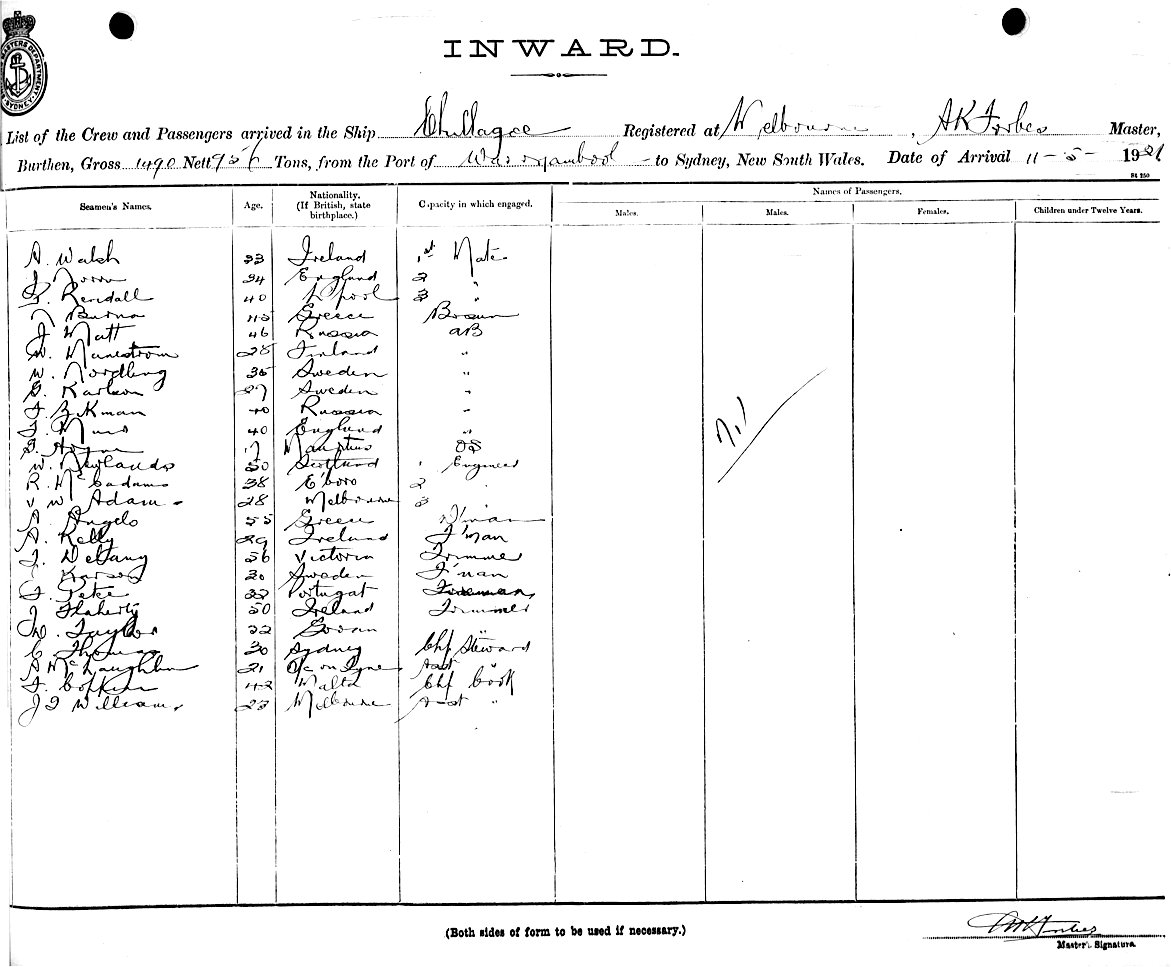 MASTERS DEPARTMENT SYDNEY
INWARD.
List of the Crew and Passengers arrived in the Ship Chillagoe Registered at Melbourne, AK Forbes Master,
Burthen, Gross 1490 Nett Tons, from the Port of Warrnambool to Sydney, New South Wales. Date of Arrival 11-5-1921
St 250
Seamen's Names. Age. Nationality. (If British, state birthplace.) Capacity in which engaged. Names of Passengers.
Males. Males. Females. Children under Twelve Years.
A. Walsh 33 Ireland 1st Mate
34 England 2 "
Kendall 40 L'pool 3 "
Greece Bosun
J Matt 46 Russia AB
W. 28 Finland "
W. Nordling 35 Sweden "
Karlson 27 Sweden "
40 Russia "
40 England "
Mauritius OS
W. Newlands 50 Scotland 1 Engineer
R. McCadam 38 E'boro 2 "
V W Adams 28 Melbourne 3
A. Angelo 55 Greece D'man
A. Kelly 29 Ireland F'man
Delany 56 Victoria Trimmer
30 Sweden F'man
Portugal Fireman
J Flaherty 50 Ireland Trimmer
Taylor 22 Govan "
C Thomas 30 Sydney Chf Steward
A McLaughlin 21 on Tyne Asst "
42 Malta Chf Cook
J Williams 23 Melbourne Asst "
Nil
(Both sides of form to be used if necessary.)
AK Forbes
Master's Signature.